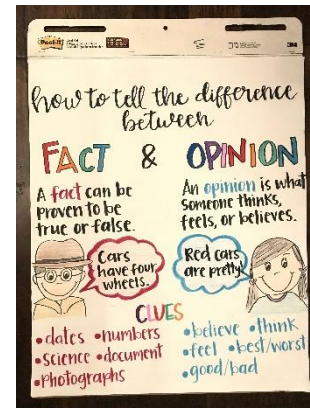 Post-it
3M
how to tell the difference
between
FACT & OPINION
A fact can be
proven to be
true or false.
An opinion is what
someone thinks,
feels, or believes.
Cars
have four
wheels.
Red cars
are pretty
CLUES
•dates •numbers
•science •document
•photographs
•believe •think
•feel •best/worst
•good/bad